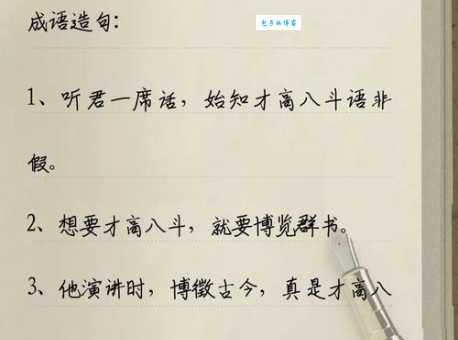 成语造句：
包子的博客
1、听君一席话，始知才高八斗语非
假。
2、想要才高八斗，就要博览群书。
3、他演讲时，博徵古今，真是才高八